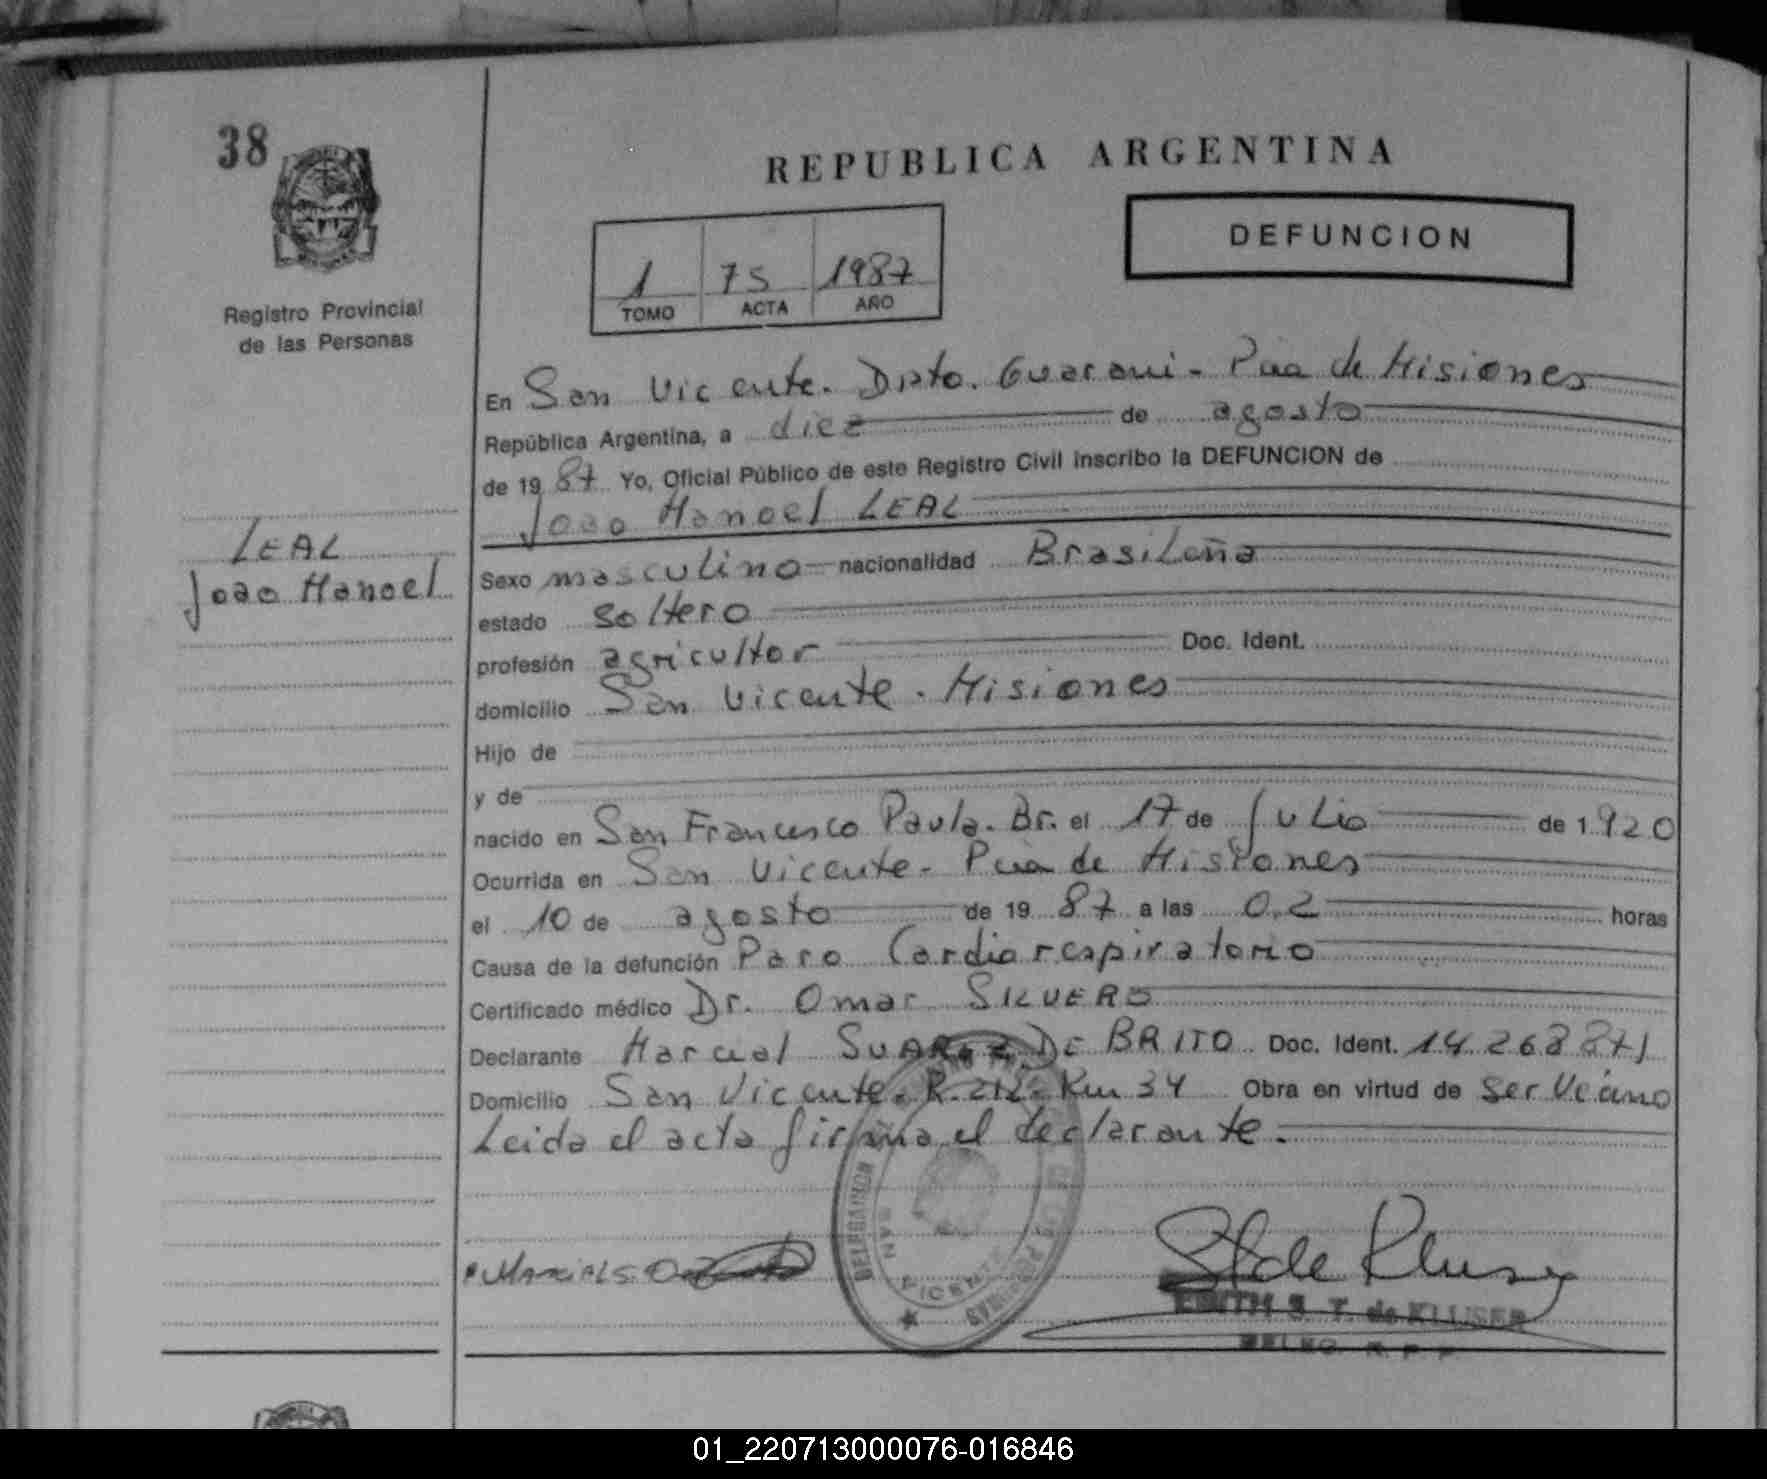 38
REPUBLICA ARGENTINA
DEFUNCION
1 75 1987
TOMO ACTA AÑO
Registro Provincial
de las Personas
En San Vicente. Dpto. Guarani - Pcia de Misiones
República Argentina, a diez de agosto
de 1987 Yo, Oficial Público de este Registro Civil inscribo la DEFUNCION de
Joao Manoel LEAL
LEAL
Joao Manoel
Sexo masculino nacionalidad Brasileña
estado soltero
profesión agricultor Doc. Ident.
domicilio San Vicente - Misiones
Hijo de
y de
nacido en San Francisco Paula. Br. el 17 de Julio de 1920
Ocurrida en San Vicente - Pcia de Misiones
el 10 de agosto de 1987 a las 0,2 horas
Causa de la defunción Paro Cardiorespiratorio
Certificado médico Dr. Omar SILVERO
Declarante Marcial SUAREZ DE BRITO Doc. Ident. 14.268.871
Domicilio San Vicente - R. 212 - Km 34 Obra en virtud de ser Vecino
Leida el acta firma el declarante.
DELEGACION
SAN VICENTE
DE LAS PERSONAS
EDITH S. T. de KLUSER
DELEG. R. P. P.
01_220713000076-016846